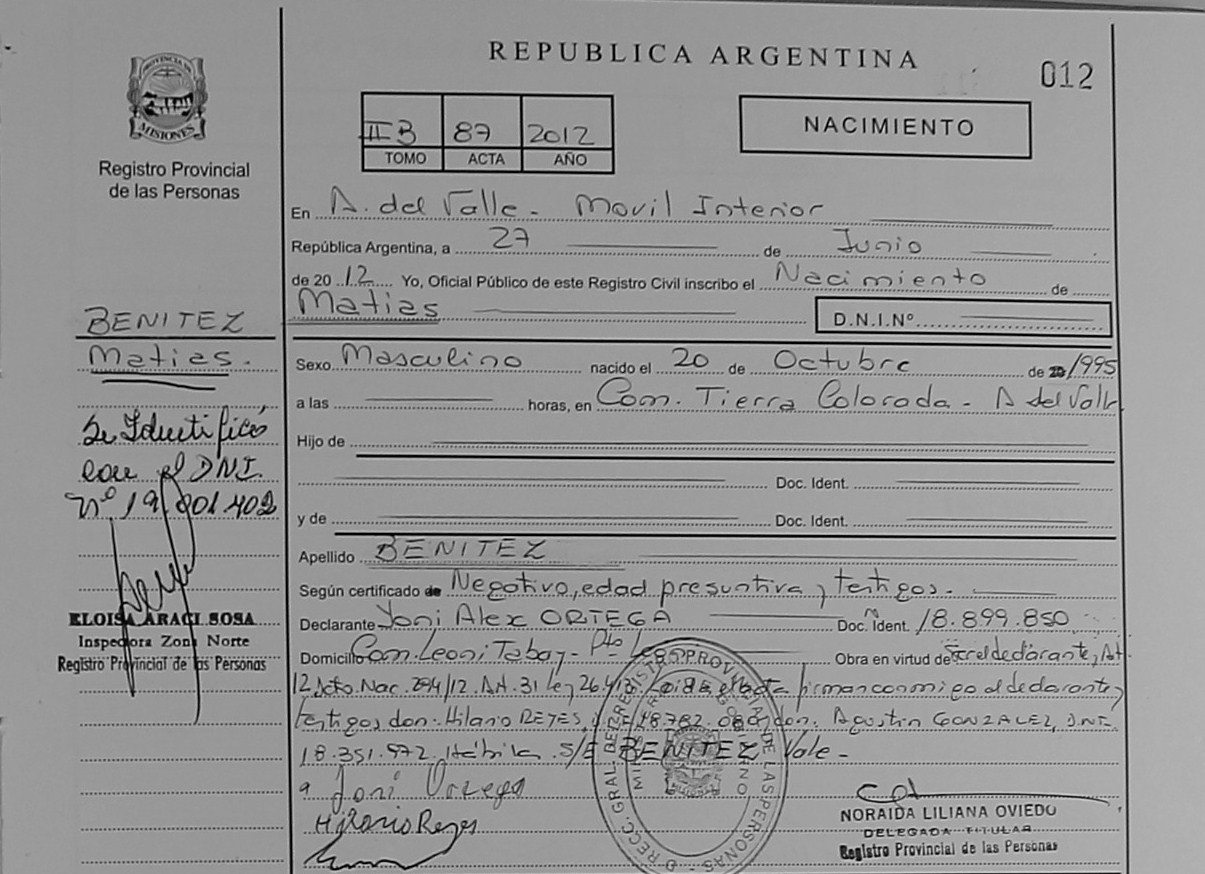 REPUBLICA ARGENTINA
012
PROVINCIA DE
MISIONES
Registro Provincial
de las Personas
II B 87 2012
TOMO ACTA AÑO
NACIMIENTO
En A. del Valle - Movil Interior
República Argentina, a 27 de Junio
de 2012 Yo, Oficial Público de este Registro Civil inscribo el Nacimiento de
Matias
D.N.I.Nº
BENITEZ
Matias.
Se Identificó
con el DNI.
Nº 19.801.402
ELOISA ARACI SOSA
Inspectora Zona Norte
Registro Provincial de las Personas
Sexo Masculino nacido el 20 de Octubre de 1995
a las horas, en Com. Tierra Colorada - A del Valle
Hijo de
Doc. Ident.
y de Doc. Ident.
Apellido BENITEZ
Según certificado de Negativo, edad presuntiva y testigos.
Declarante Joni Alex ORTEGA Doc. Ident. 18.899.850
Domicilio Com. Leoni Tabay - Pto Obra en virtud de ser el declarante, Art.
12 Dcto. Nac. 294/12. Art. 31 Ley 26.413. Leida el acta firman conmigo el declarante y
testigos don: Hilario REYES, 18.782.080 y don: Agustin GONZALEZ, DNI.
18.351.972 S/E BENITEZ Vale -
Joni Ortega
Hilario Reyes
NORAIDA LILIANA OVIEDO
DELEGADA TITULAR
Registro Provincial de las Personas